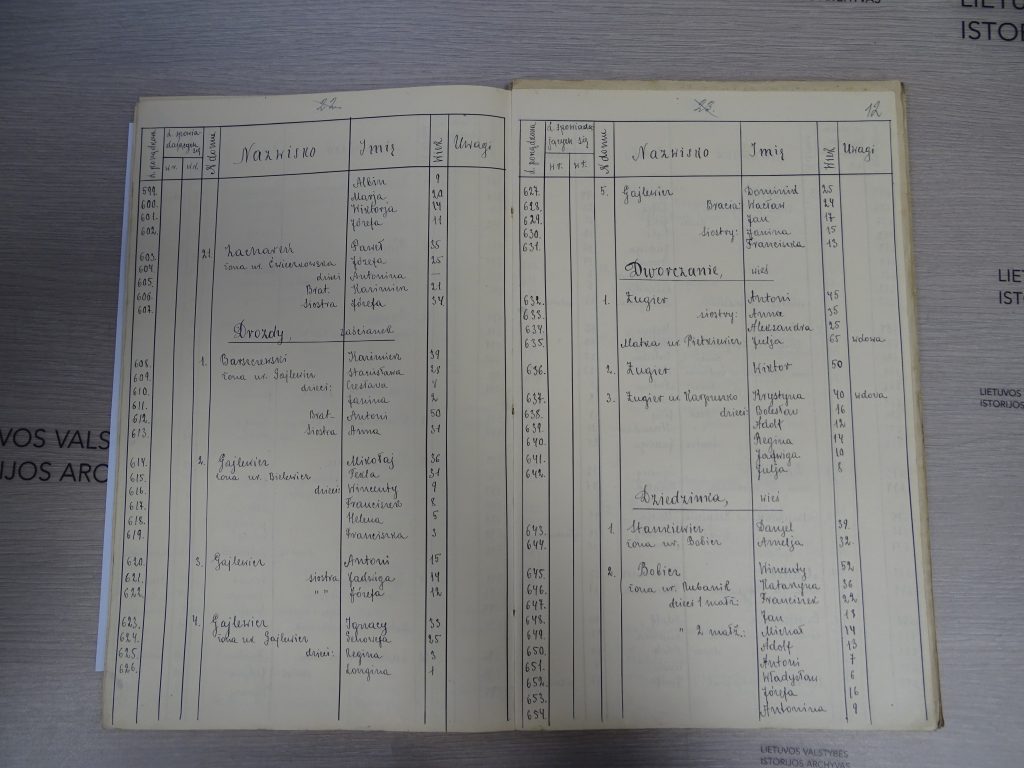 LIETUVOS VALSTYBĖS
ISTORIJOS ARCHYVAS
22
l. porządkowa
l. spowia
dających się
w.r.
w.t.
N domu
Nazwisko
Imię
Wiek
Uwagi
599. Albin 9
600. Marja 20
601. Wiktorja 14
602. Józefa 11
603. 21 Zacharen Paweł 35
604. żona ur. Ćwieczkowska Józefa 25
605. dzieci Antonina —
606. Brat. Kazimierz 21
607. Siostra Józefa 34
Drozdy, zaścianek
608. 1. Barszczewski Kazimierz 39
609. żona ur. Gajlewicz Stanisława 28
610. dzieci: Czesława
611. Janina 2
612. Brat Antoni 50
613. Siostra Anna 31
614. 2. Gajlewicz Mikołaj 36
615. żona ur. Bielewicz Tekla 31
616. dzieci: Wincenty 9
617. Franciszek 8
618. Helena 5
619. Franciszka 3
620. 3. Gajlewicz Antoni 15
621. siostra Jadwiga 14
622. " " Józefa 12
623. 4. Gajlewicz Ignacy 33
624. żona ur. Gajlewicz Genowefa 25
625. dzieci: Regina 3
626. Longina 1
23
12
l. porządkowa
l. spowiada
jących się
w.r.
w.t.
N domu
Nazwisko
Imię
Wiek
Uwagi
627. 5. Gajlewicz Dominik 25
628. Bracia: Wacław 24
629. Jan 17
630. Siostry: Janina 15
631. Franciszka 13
Dworczanie, wieś
632. 1. Zugier Antoni 45
633. siostry: Anna 35
634. Aleksandra 25
635. Matka ur. Pietkiewicz Julja 65 wdowa
636. 2. Zugier Wiktor 50
637. 3. Zugier ur. Karpunko Krystyna 40 wdowa
638. dzieci: Bolesław 16
639. Adolf 12
640. Regina 14
641. Jadwiga 10
642. Julja 8
Dziedzinka, wieś
643. 1. Stankiewicz Danjel 39.
644. żona ur. Bobicz Amelja 32.
645. 2. Bobicz Wincenty 52
646. żona ur. Rubanik Katarzyna 36
647. dzieci 1 małż: Franciszek 22
648. Jan 17
649. " 2 małż.: Michał 14
650. Adolf 13
651. Antoni 7
652. Władysław 6
653. Józefa 16
654. Antonina 9
LIETUVOS VALSTYBĖS
ISTORIJOS ARCHYVAS